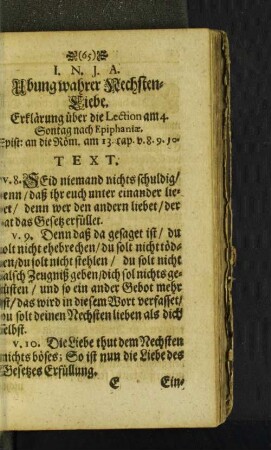 (65)
I. N. J. A.
Ubung wahrer Nechsten-
Liebe.
Erklärung über die Lection am 4.
Sontag nach Epiphaniæ.
Epist: an die Röm. am 13. cap. v. 8. 9. 10.
TEXT.
v. 8. SEid niemand nichts schuldig/
enn/ daß ihr euch unter einander lie-
et/ denn wer den andern liebet/ der
at das Gesetz erfüllet.
v. 9. Denn daß da gesaget ist/ du
olt nicht ehebrechen/ du solt nicht töd-
en/ du solt nicht stehlen/ du solt nicht
alsch Zeugniß geben/ dich sol nichts ge-
üsten/ und so ein ander Gebot mehr
st/ das wird in diesem Wort verfasset/
u solt deinen Nechsten lieben als dich
elbst.
v. 10. Die Liebe thut dem Nechsten
nichts böses; So ist nun die Liebe des
Gesetzes Erfüllung.
E Ein-